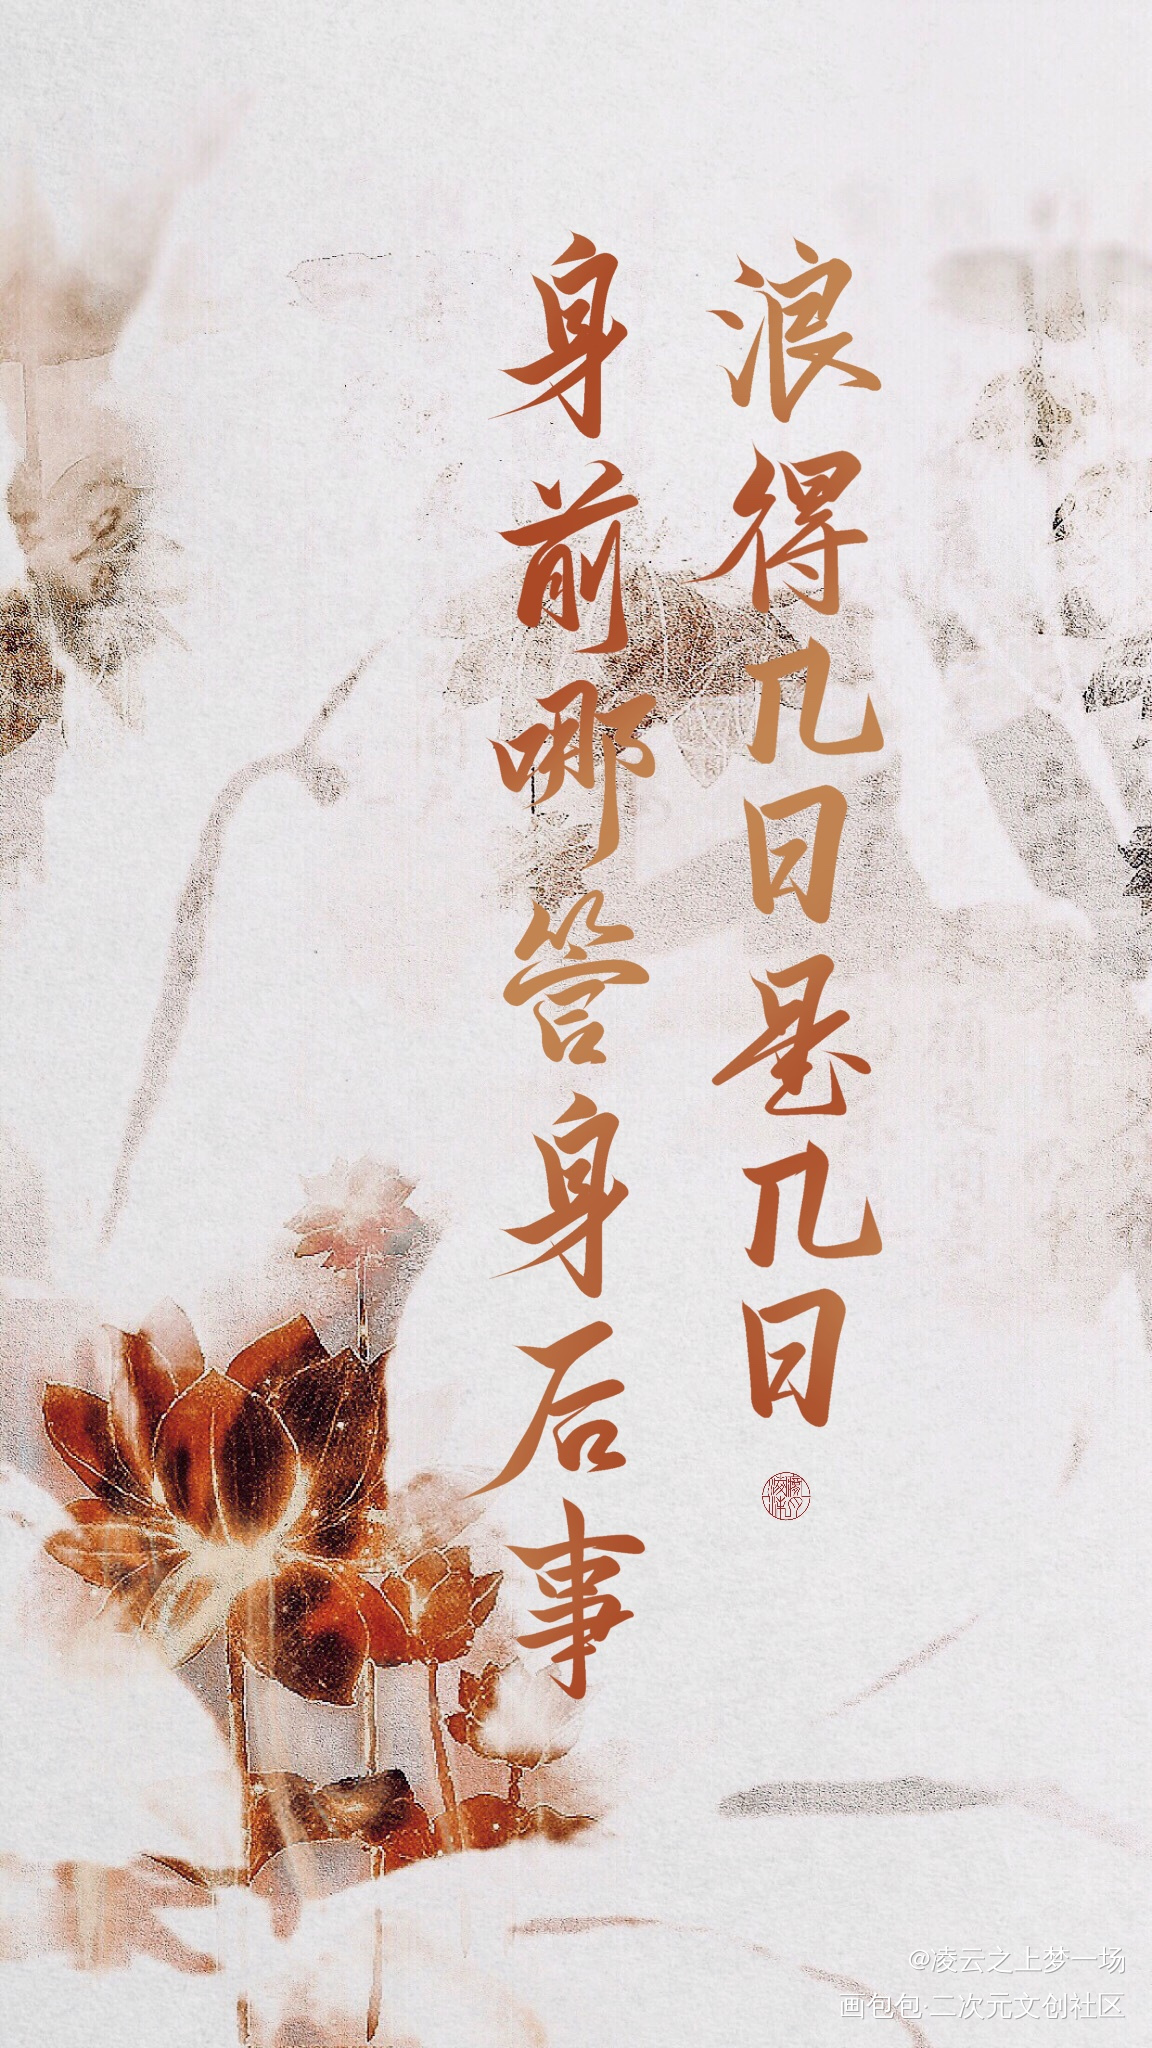 浪得几日是几日
身前哪管身后事
@凌云之上梦一场
画包包·二次元文创社区